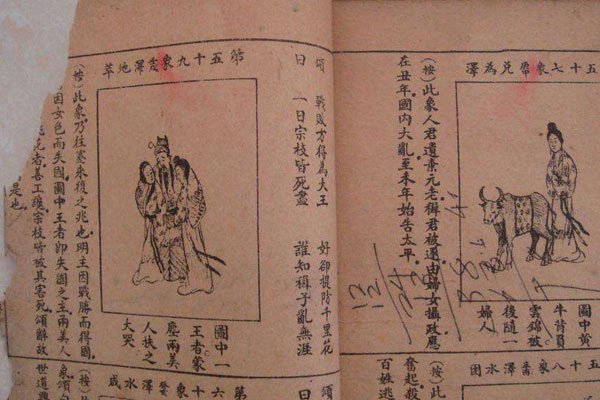 五十七象 兌為澤
圖中黃
牛背負
雲錦被
後隨一
婦人
(按)此象人君遺素元老
君被遷由婦女攝政應
在丑年國內大亂至未年始告太平。
五十八象 澤水困
奮起殺
百姓逃
頌曰
戰敗方得為大王
好卻提防千里花
一日宗枝皆死盡
誰知褲子亂無涯
第五十九象 澤地萃
圖中一
王者蒙
塵兩美
人扶之
大哭
(按)此象乃往塞朱後之兆也。明主因戰勝而得國。
因女色而失國。圖中王者即失國之主。兩美人
花者善工讒。宗枝皆被其害死。頌辭故
是也。
第六十象 澤水咸
曰
(按)此
象頌
世道